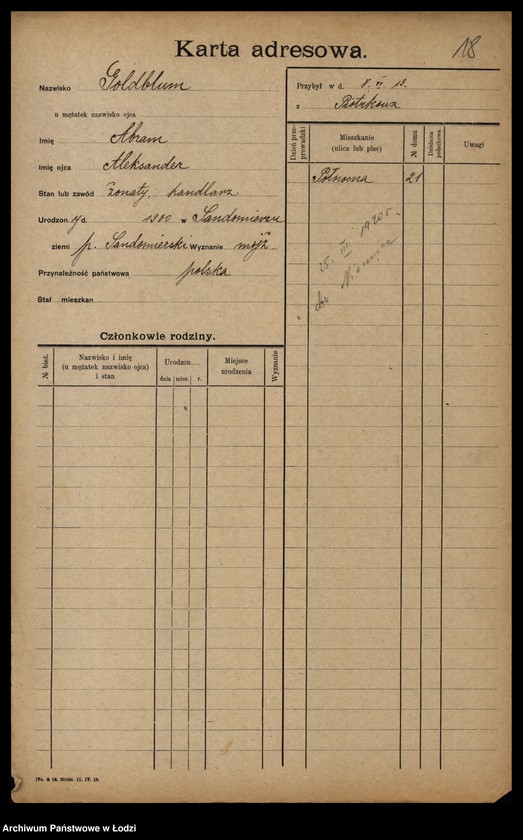 Karta adresowa.
18
Nazwisko Goldblum
u mężatek nazwisko ojca
Imię Abram
Imię ojca Aleksander
Stan lub zawód żonaty, handlarz
Urodzon y d. 1900 w Sandomierzu
ziemi p. Sandomierski Wyznanie mojż.
Przynależność państwowa polska
Stał mieszkan
Przybył w d. 8. VI 19.
z Piotrkowa
Dzień przeprowadzki
Mieszkanie
(ulica lub plac)
№ domu
Dzielnica podatkowa
Uwagi
Północna 21
25. III 1920 r.
do
Członkowie rodziny.
№ bież.
Nazwisko i imię
(u mężatek nazwisko ojca)
i stan
Urodzon
dnia mies. r.
Miejsce
urodzenia
Wyznanie
IVa. № 18. 30000. 15. IV. 19.
Archiwum Państwowe w Łodzi